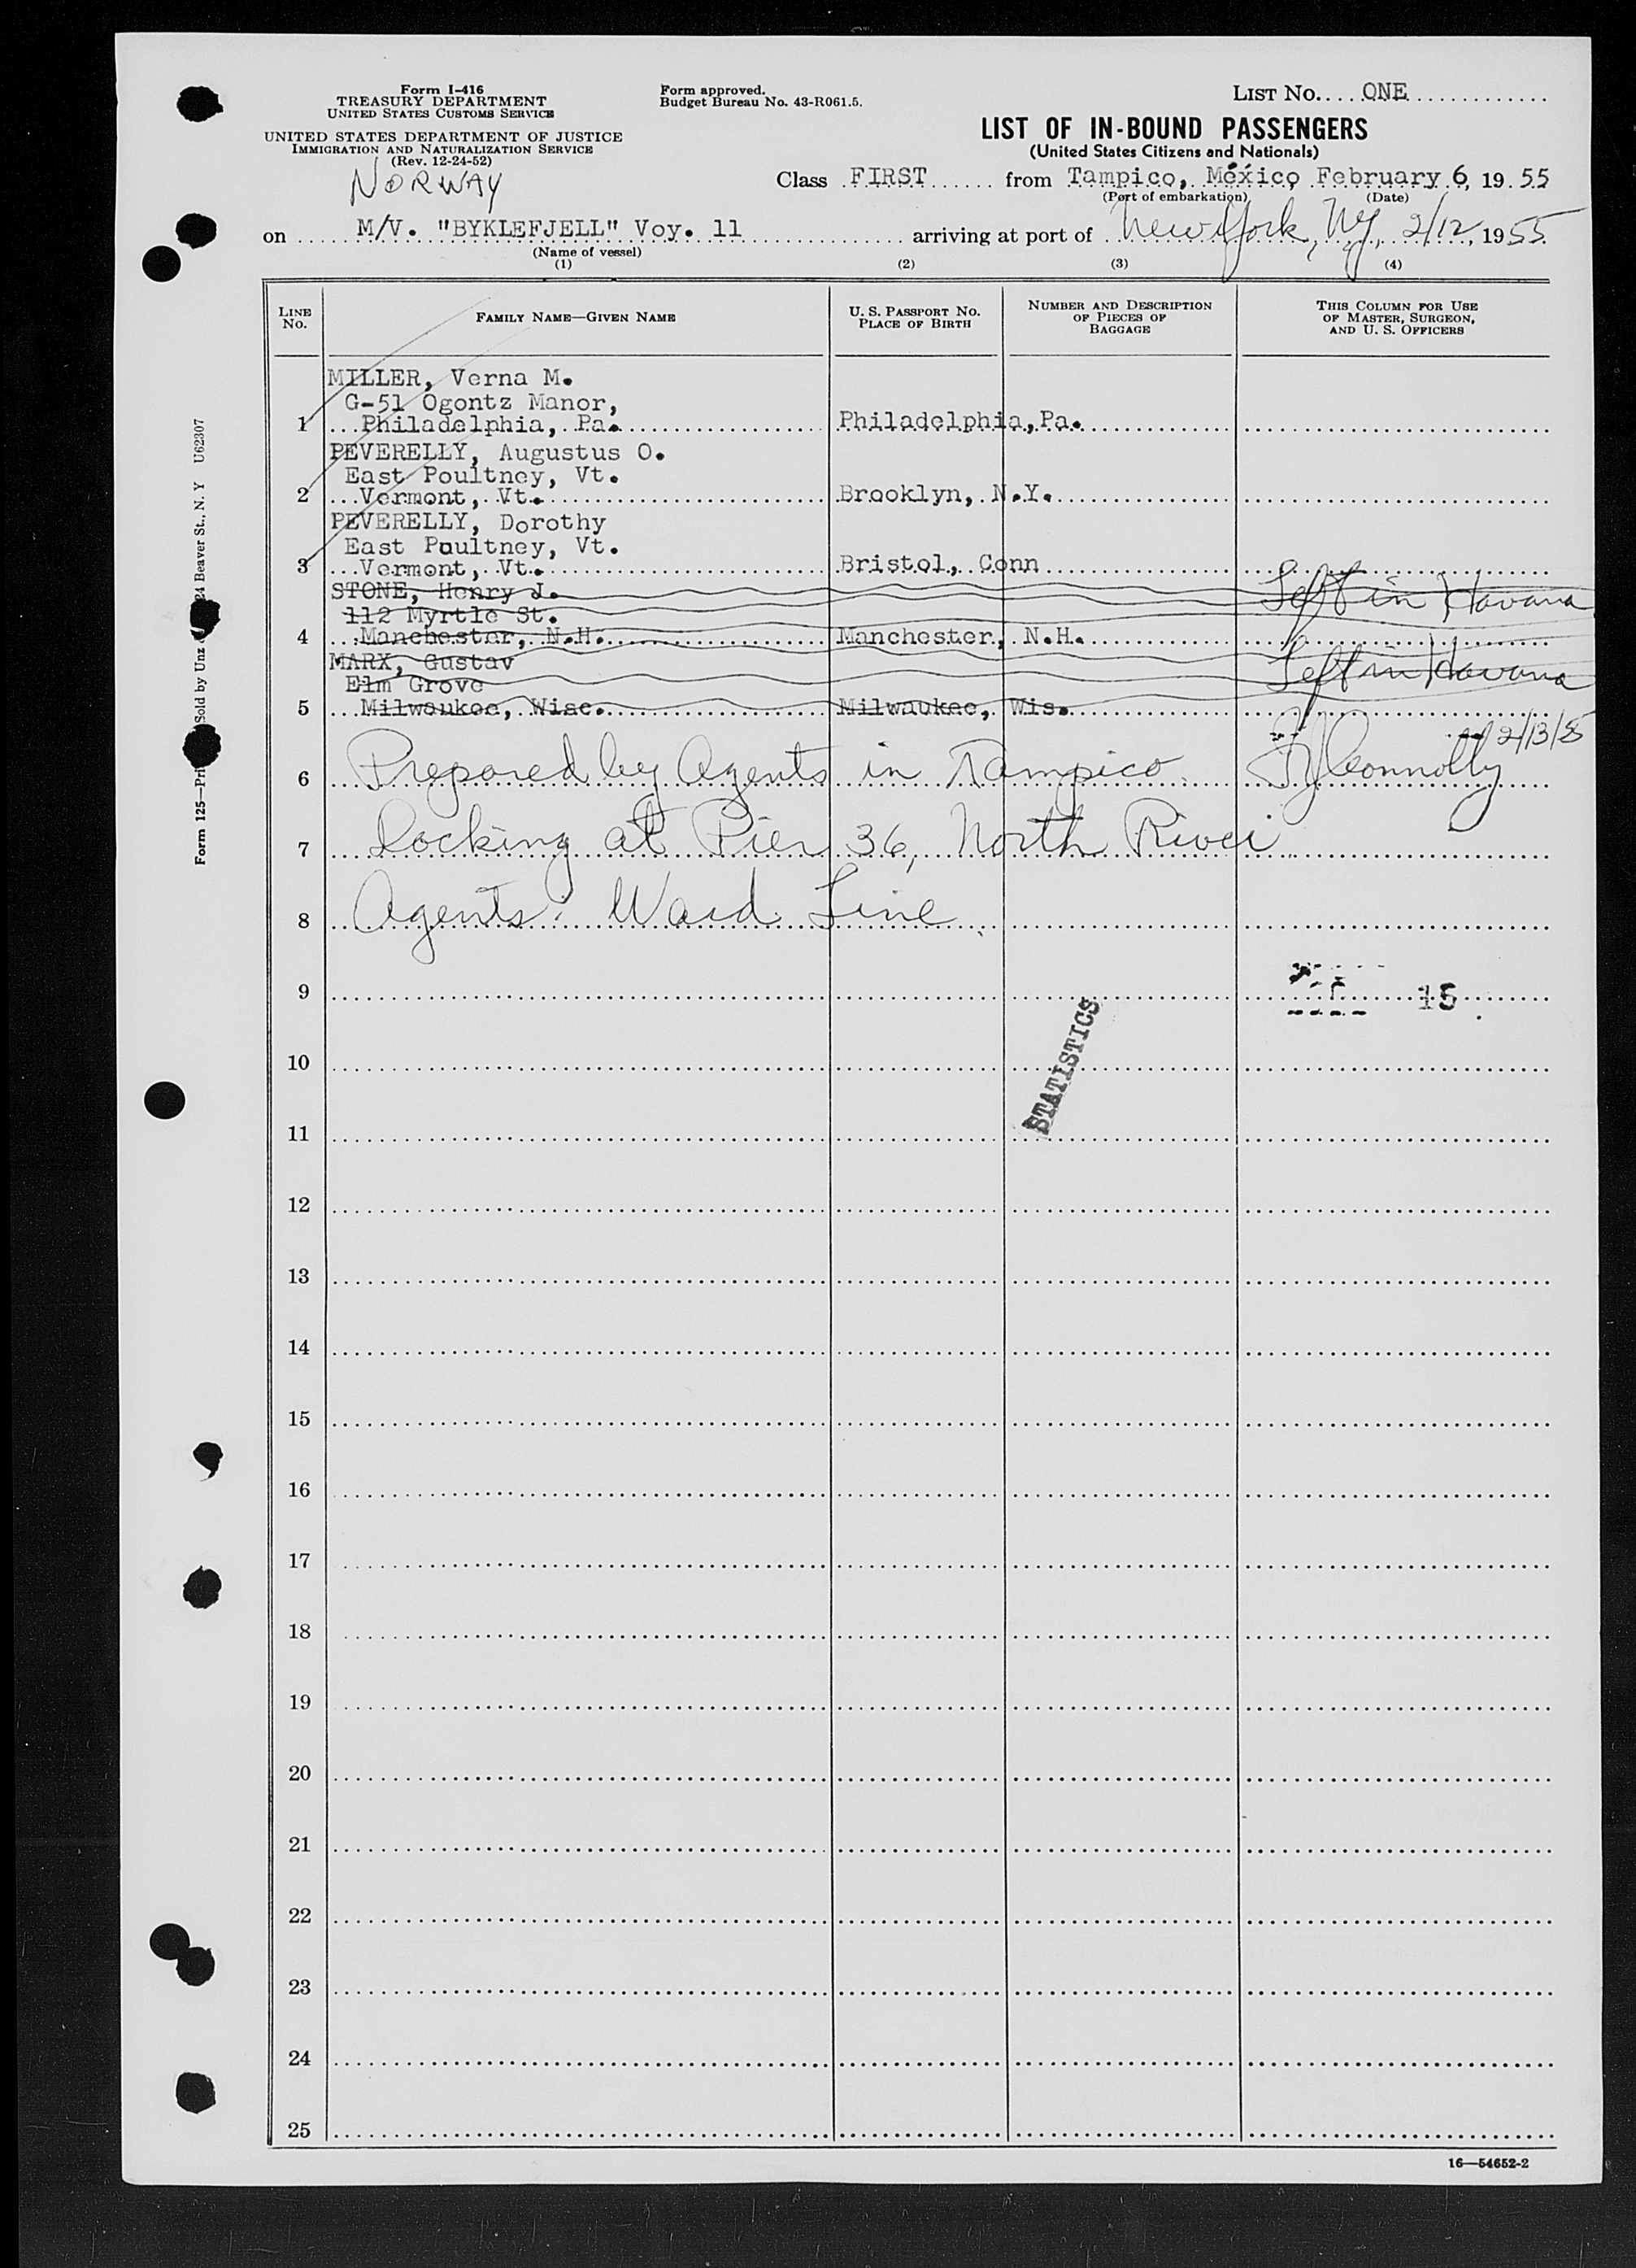 Form I-416
TREASURY DEPARTMENT
UNITED STATES CUSTOMS SERVICE
UNITED STATES DEPARTMENT OF JUSTICE
IMMIGRATION AND NATURALIZATION SERVICE
(Rev. 12-24-52)
NORWAY
Form approved.
Budget Bureau No. 43-R061.5.
LIST No. ONE
LIST OF IN-BOUND PASSENGERS
(United States Citizens and Nationals)
Class FIRST from Tampico, México February 6, 19 55
(Port of embarkation) (Date)
on M/V. "BYKLEFJELL" Voy. 11 arriving at port of New York, NY, 2/12, 1955
(Name of vessel)
(1) (2) (3) (4)
LINE No. FAMILY NAME—GIVEN NAME U. S. PASSPORT No. PLACE OF BIRTH NUMBER AND DESCRIPTION OF PIECES OF BAGGAGE THIS COLUMN FOR USE OF MASTER, SURGEON, AND U. S. OFFICERS
MILLER, Verna M.
G-51 Ogontz Manor,
1 Philadelphia, Pa. Philadelphia, Pa.
PEVERELLY, Augustus O.
East Poultney, Vt.
2 Vermont, Vt. Brooklyn, N.Y.
PEVERELLY, Dorothy
East Poultney, Vt.
3 Vermont, Vt. Bristol, Conn
STONE, Henry J. Left in Havana
112 Myrtle St.
4 Manchester, N.H. Manchester, N.H.
MARX, Gustav Left in Havana
Elm Grove
5 Milwaukee, Wisc. Milwaukee, Wis.
2/13/5
6 Prepared by Agents in Tampico Connolly
7 Docking at Pier 36, North River
8 Agents: Ward Line
9 15
STATISTICS
10
11
12
13
14
15
16
17
18
19
20
21
22
23
24
25
16—54652-2
Form 125—Pri Sold by Unz 24 Beaver St., N. Y U62307